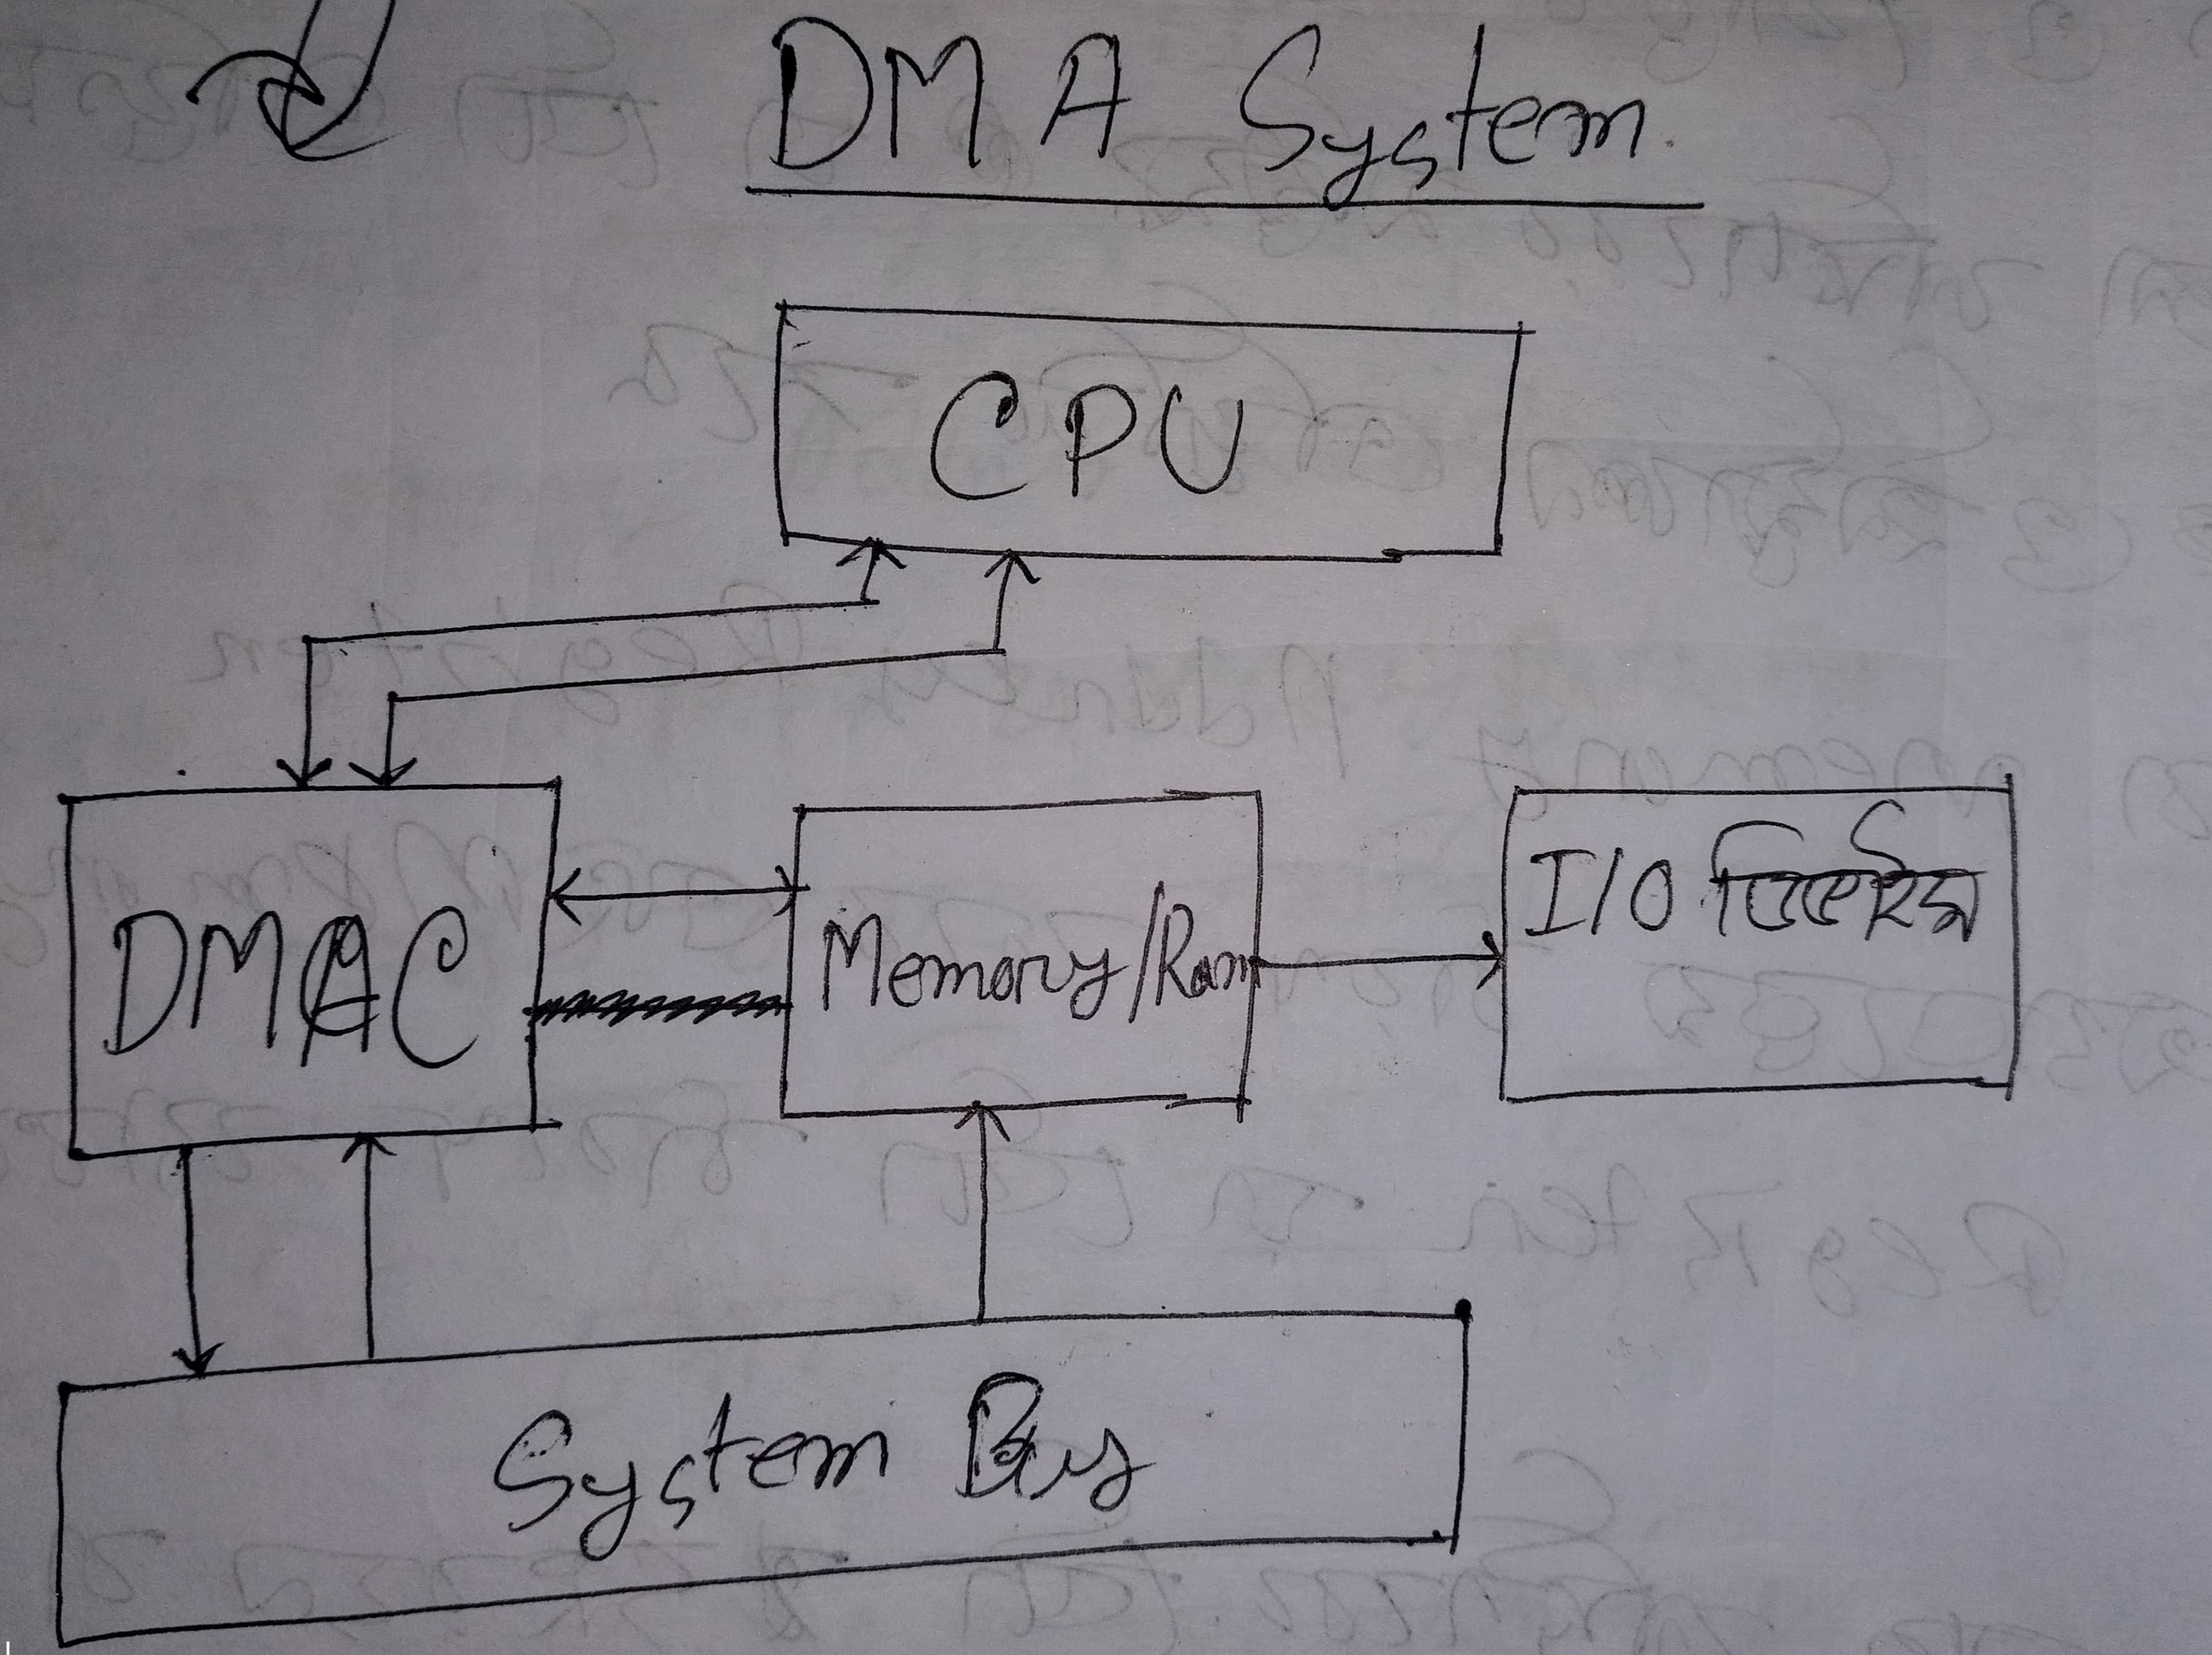 DMA System.
CPU
DMAC
Memory/Ram
I/O
System Bus